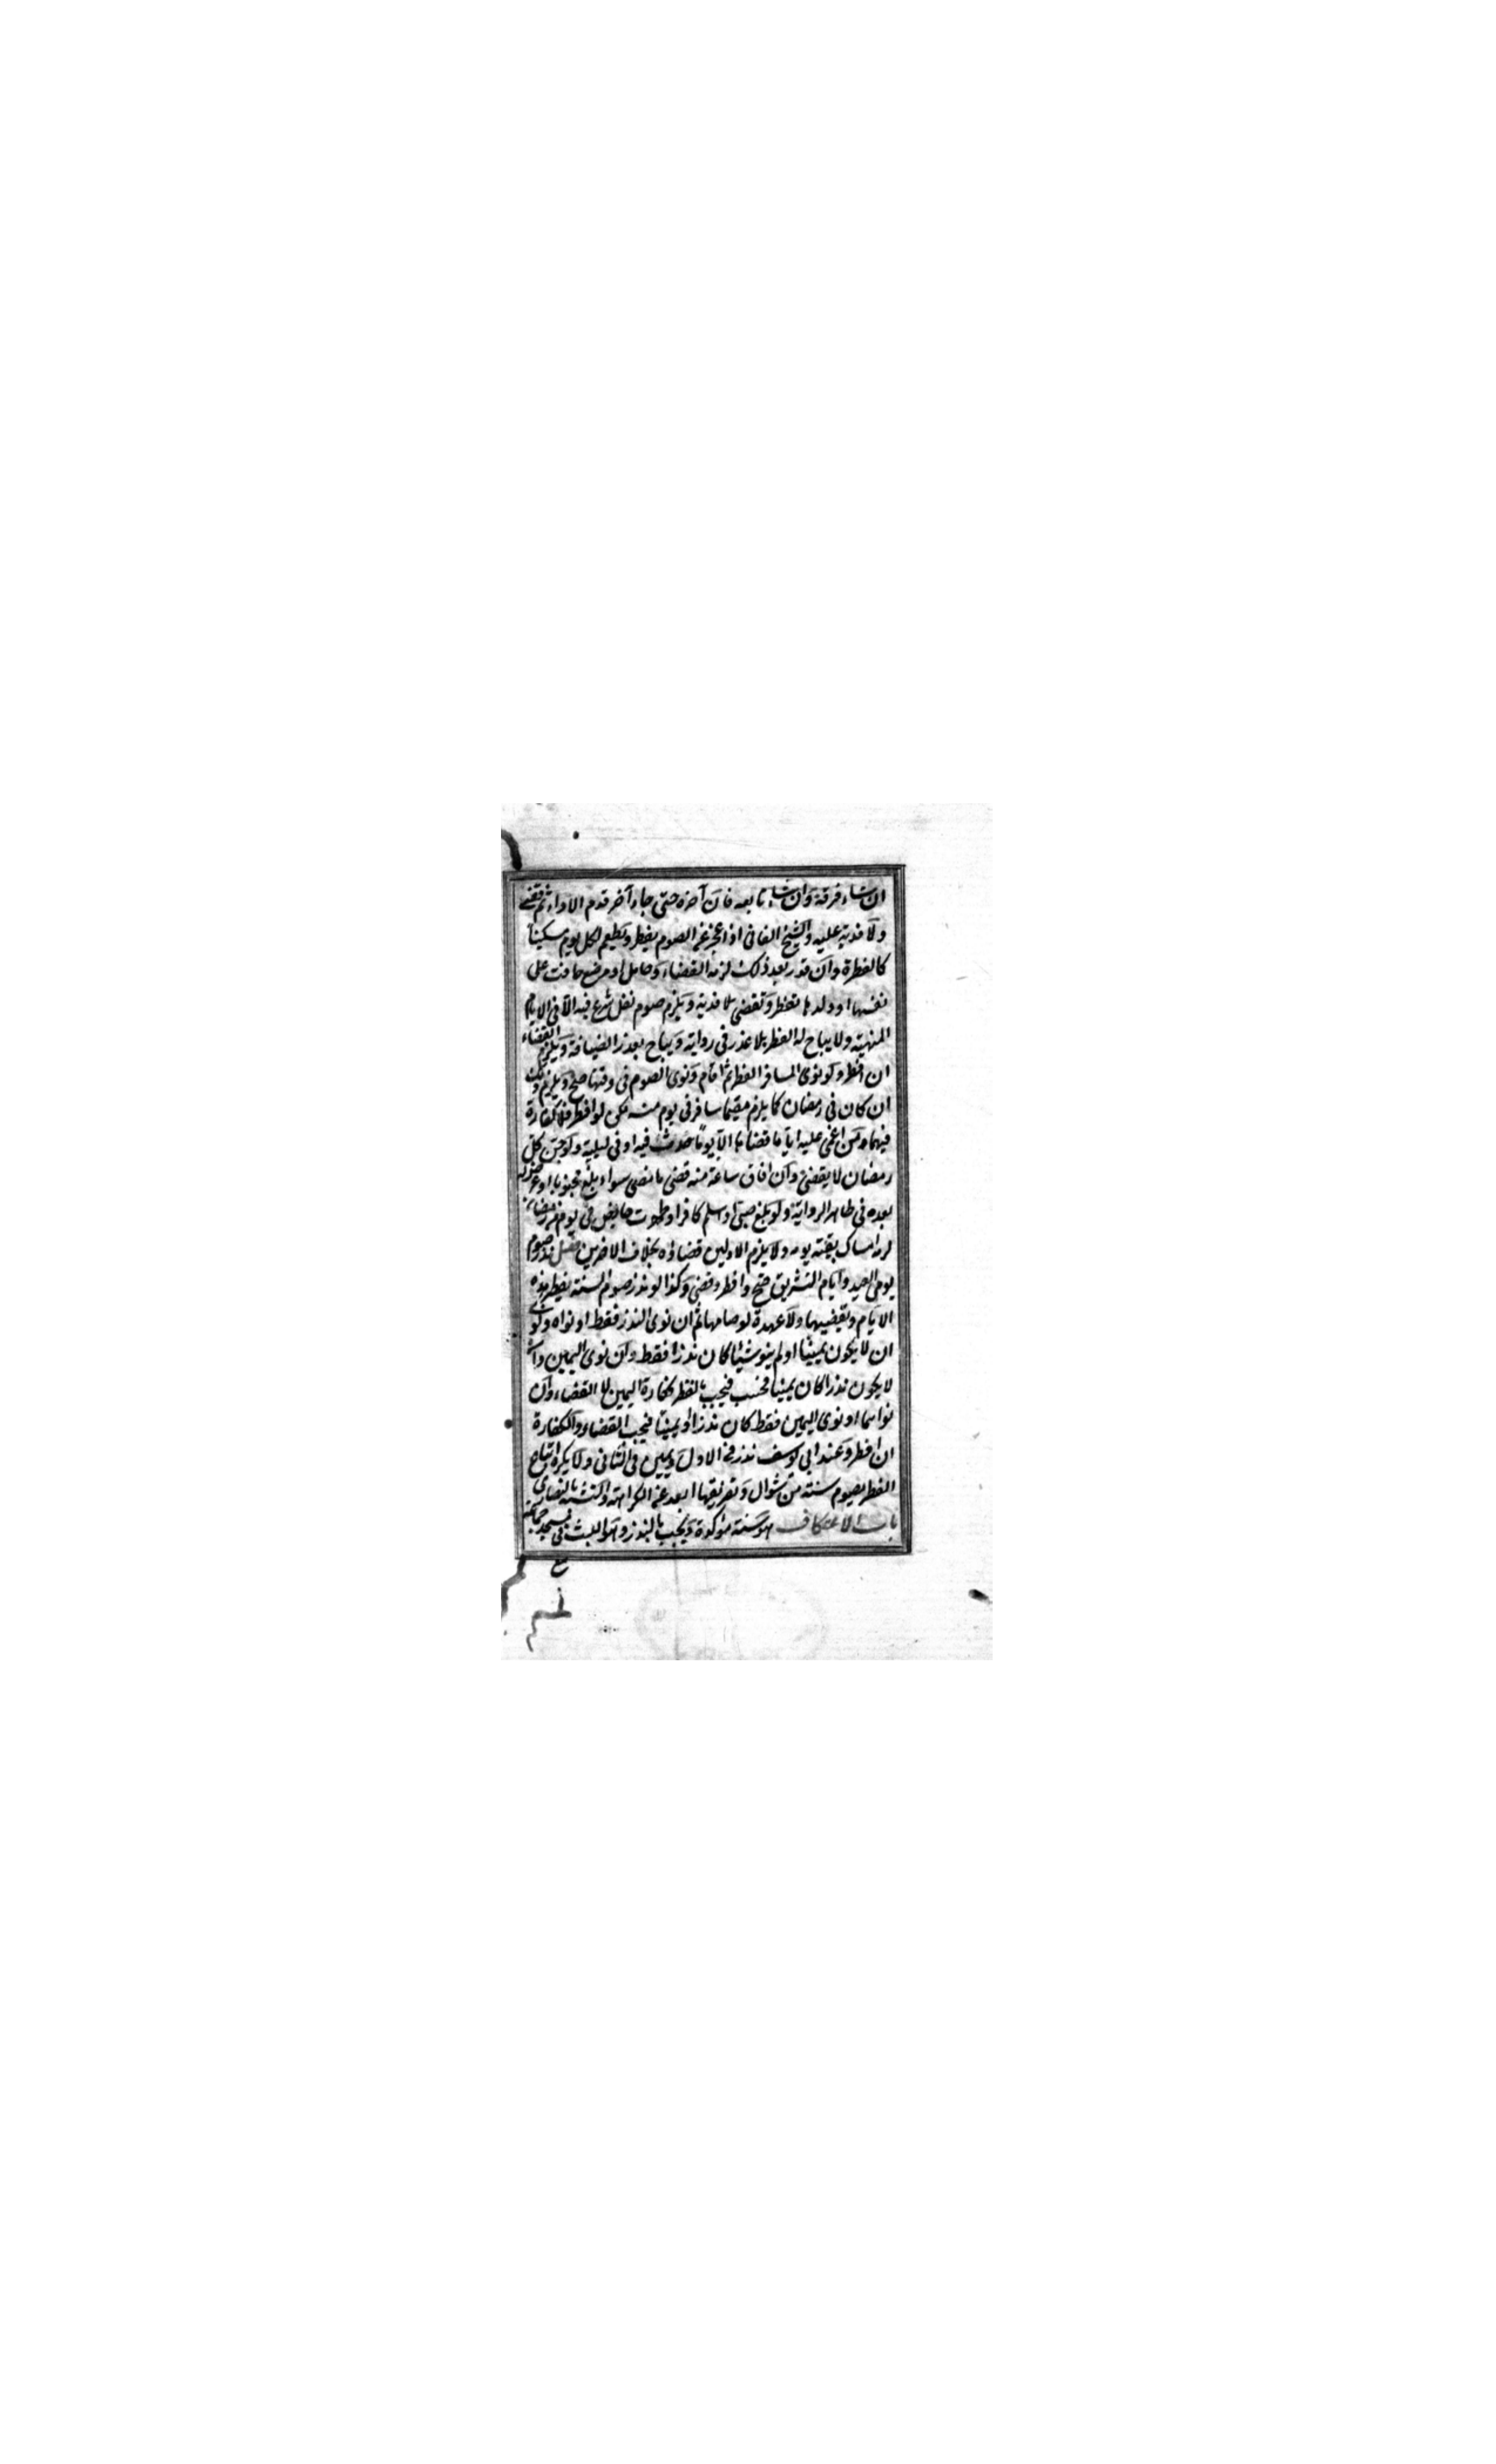 ان شاء فرقه وان شاء تابعه فان آخره حتى جاء آخر قدم الاداء ثم قضى
ولا فدية عليه والشيخ الفانى اذا عجز عن الصوم يفطر ويطعم لكل يوم مسكينا
كالفطرة وان قدر بعد ذلك لزمه القضاء وحامل او مرضع خافت على
نفسها او ولدها تفطر وتقضى بلا فدية ويلزم صوم نفل شرع فيه الا فى الايام
المنهية ولا يباح له الفطر بلا عذر فى رواية ويباح بعذر الضيافة ويلزم القضاء
ان افطر ولو نوى المسافر الفطر ثم اقام ونوى الصوم فى وقتها صح ويلزم ذلك
ان كان فى رمضان كما يلزم مقيما سافر فى يوم منه لكن لو افطر فلا كفارة
فيهما ومن اغمى عليه اياما قضاها الا يوما حدث فيه او فى ليلته ولو جن كل
رمضان لا يقضى وان افاق ساعة منه قضى ما مضى سواء بلغ مجنونا او عرض له
بعده فى ظاهر الرواية ولو بلغ صبى او اسلم كافر او طهرت حائض فى يوم من رمضان
لزمه امساك بقية يومه ولا يلزم الاولين قضاؤه بخلاف الاخرين فصل نذر صوم
يومى العيد وايام التشريق صح وافطر وقضى وكذا لو نذر صوم السنة يفطر هذه
الايام ويقضيها ولا عهدة لو صامها ثم ان نوى النذر فقط او نواه ونوى
ان لا يكون يمينا او لم ينو شيئا كان نذرا فقط وان نوى اليمين وان
لا يكون نذرا كان يمينا فحسب فيجب بالفطر كفارة اليمين لا القضاء وان
نواهما او نوى اليمين فقط كان نذرا ويمينا فيجب القضاء والكفارة
ان افطر وعند ابى يوسف نذر فى الاول ويمين فى الثانى ولا يكره اتباع
الفطر بصوم ستة من شوال وتفريقها ابعد عن الكراهة والتشبه بالنصارى
باب الاعتكاف هو سنة مؤكدة ويجب بالنذر وهو اللبث فى مسجد جماعة
مع